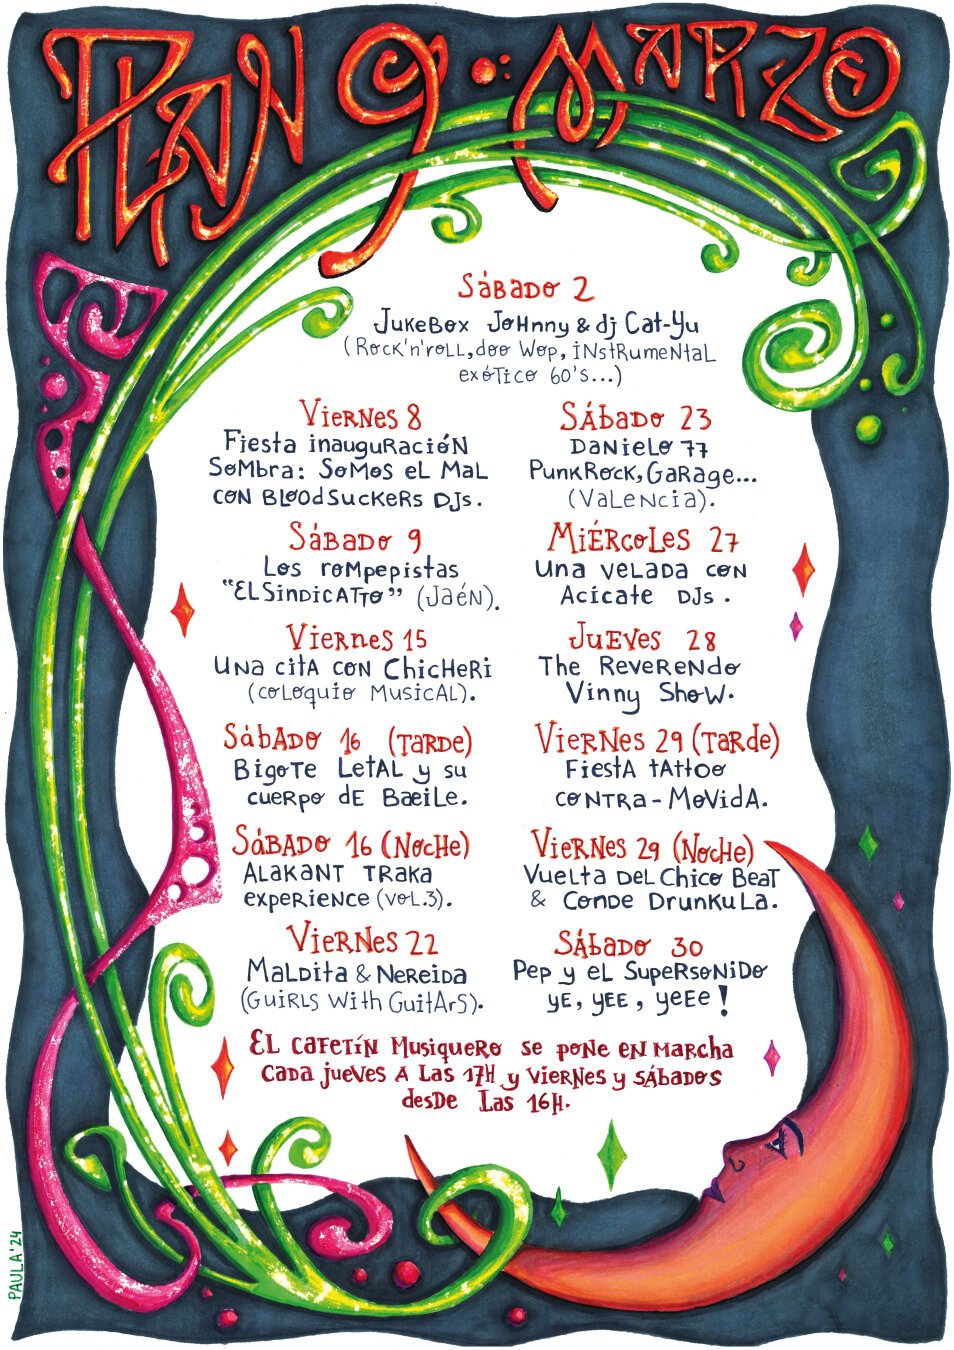 PLAN 9 · MARZO
SÁBADO 2
JUKEBOX JOHNNY & dj CAT-YU
(ROCK'n'ROLL, doo Wop, iNStRUMeNtaL
exÓTICO 60's...)
VIERNES 8
Fiesta inauguRACIÓN
SOMBRA: SOMOS EL MAL
CON BLOODSUCKERS DJs.
SÁBADO 9
Los rompepistas
"EL SINDICATTO" (JAÉN).
VIERNES 15
UNA CITA CON CHICHERI
(COLOQUIO MUSICAL).
SÁBADO 16 (TARDE)
BIGOTE LETAL y su
cuerpo dE BAEILE.
SÁBADO 16 (NOCHE)
ALAKANT TRAKA
experIENCE (VOL.3).
VIERNES 22
MALDITA & NEREIDA
(GUIRLS WITH GUITARS).
SÁBADO 23
DANIELO 77
PUNKROCK, GARAGE...
(VALENCIA).
MIÉRCOLES 27
UNA VELADA CON
ACICATE DJs.
JUEVES 28
THE REVERENDO
VINNY SHOW.
VIERNES 29 (TARDE)
FIESTA TATTOO
CONTRA-MOVIDA.
VIERNES 29 (NOCHE)
VUELTA DEL CHICO BEAT
& CONDE DRUNKULA.
SÁBADO 30
PEP y EL SUPERSONIDO
YE, YEE, YEEE!
EL CAFETÍN MUSIQUERO SE PONE EN MARCHA
CADA JUEVES A LAS 17H y VIERNES y SÁBADOS
DESDE LAS 16H.
PAULA'24